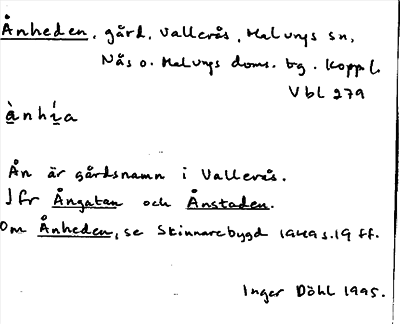 Ånheden, gård, Vallerås, Malungs sn,
Nås o. Malungs doms. bg. Kopp l.
Vbl 279
ànhía
Ån är gårdsnamn i Vallerås.
Jfr Ångatan och Ånstaden.
Om Ånheden, se Skinnarebygd 1949 s. 19 ff.
Inger Döhl 1995.